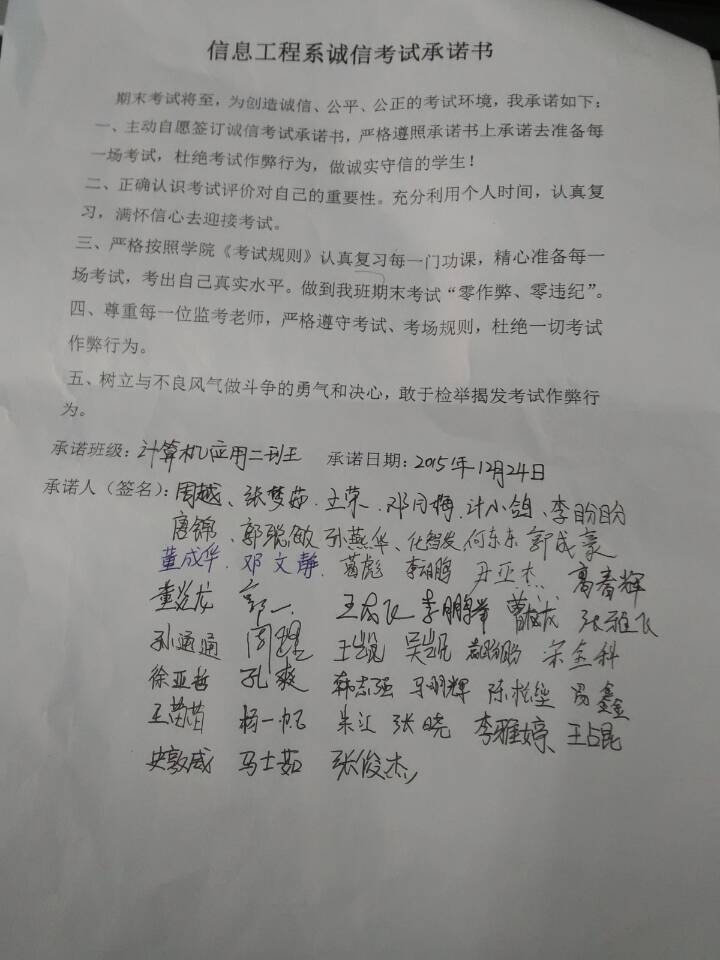 信息工程系诚信考试承诺书
期末考试将至，为创造诚信、公平、公正的考试环境，我承诺如下：
一、主动自愿签订诚信考试承诺书，严格遵照承诺书上承诺去准备每
一场考试，杜绝考试作弊行为，做诚实守信的学生！
二、正确认识考试评价对自己的重要性。充分利用个人时间，认真复
习，满怀信心去迎接考试。
三、严格按照学院《考试规则》认真复习每一门功课，精心准备每一
场考试，考出自己真实水平。做到我班期末考试“零作弊、零违纪”。
四、尊重每一位监考老师，严格遵守考试、考场规则，杜绝一切考试
作弊行为。
五、树立与不良风气做斗争的勇气和决心，敢于检举揭发考试作弊行
为。
承诺班级：计算机应用二班 承诺日期：2015年12月24日
承诺人（签名）：周越、张梦茹、王荣、邓月梅、李盼盼
唐锦、郭聪敏 孙燕华、何东东 郭成豪
董成华、邓文静、葛彪 李明鹏 尹亚杰 高春辉
郭一 李鹏举 张雅飞
孙通通 王凯 吴凯 宋金科
徐亚哲 孔爽 韩志强 马明辉 陈松垒 易鑫
王苗苗 杨一帆 朱江 张晓 李雅婷 王占昆
史敦威 马士茹 张俊杰